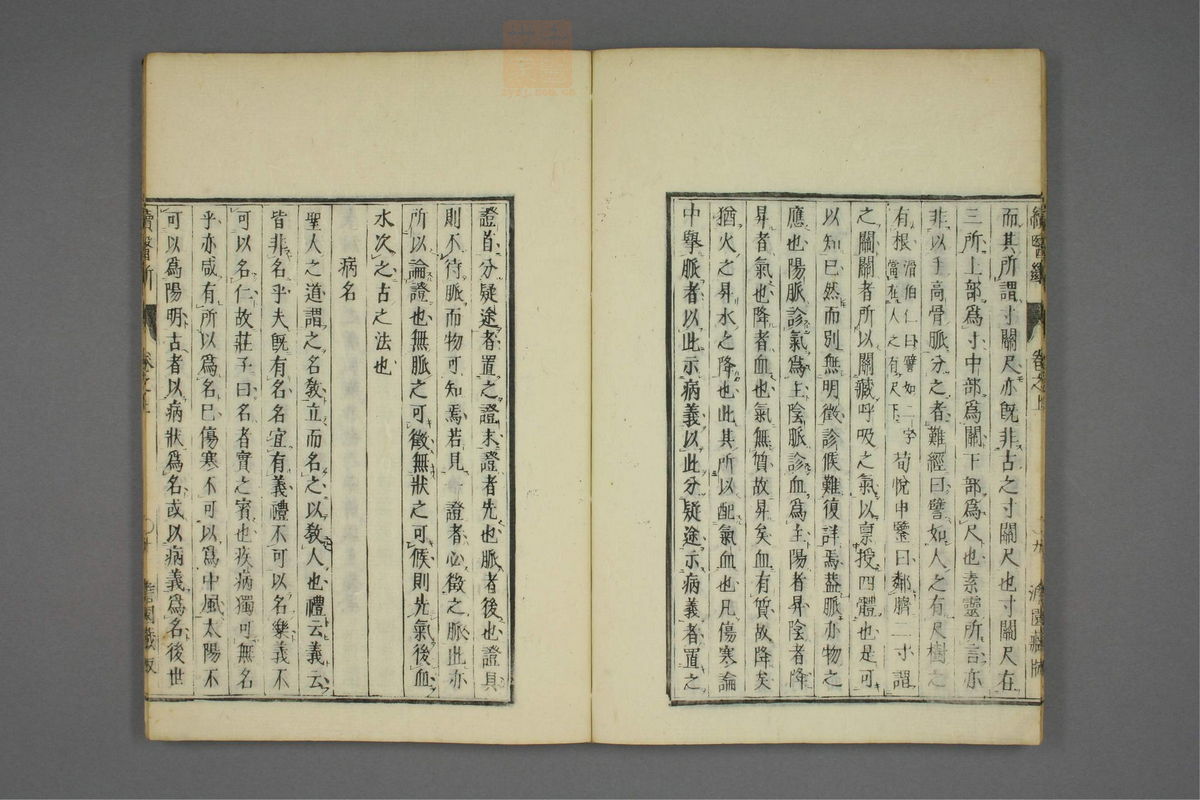 而其所謂寸關尺亦既非古之寸關尺也寸關尺在
三所上部爲寸中部爲關下部爲尺也素靈所言亦
非以手高骨脈分之者難經曰譬如人之有尺樹之
有根滑伯仁曰譬如二字當在人之有尺下荀悅申鑒曰鄰臍二寸謂
之關關者所以關藏呼吸之氣以禀授四體也是可
以知已然而別無明徵診候難復詳焉蓋脈亦物之
應也陽脈診氣爲主陰脈診血爲主陽者昇陰者降
昇者氣也降者血也氣無質故昇矣血有質故降矣
猶火之昇水之降也此其所以配氣血也凡傷寒論
中擧脈者以此示病義以此分疑途示病義者置之
證首分疑途者置之證末證者先也脈者後也證具
則不待脈而物可知焉若見證者必徵之脈此亦
所以論證也無脈之可徵無狀之可候則先氣後血
水次之古之法也
病名
聖人之道謂之名教立而名之以教人也禮云義云
皆非名乎夫既有名名宜有義禮不可以名樂義不
可以名仁故莊子曰名者實之賓也疾病獨可無名
乎亦咸有所以爲名已傷寒不可以爲中風太陽不
可以爲陽明古者以病狀爲名或以病義爲名後世